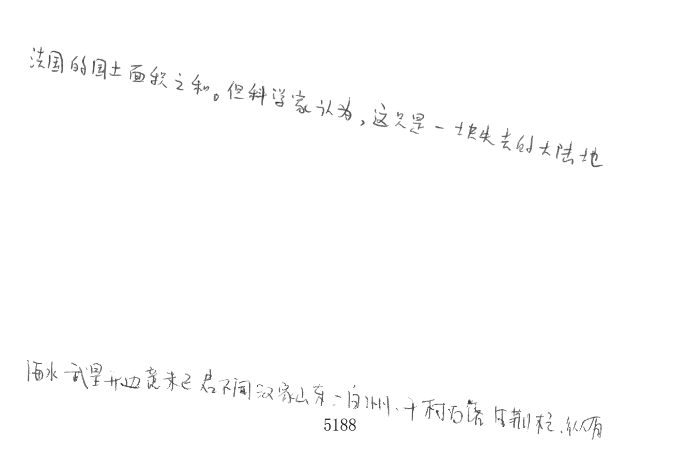 法国的国土面积之和。但科学家认为,这只是一块失去的大陆地
海水武皇开边意未已君不闻汉家山东二百州、千村万落生荆杞.纵有
5188